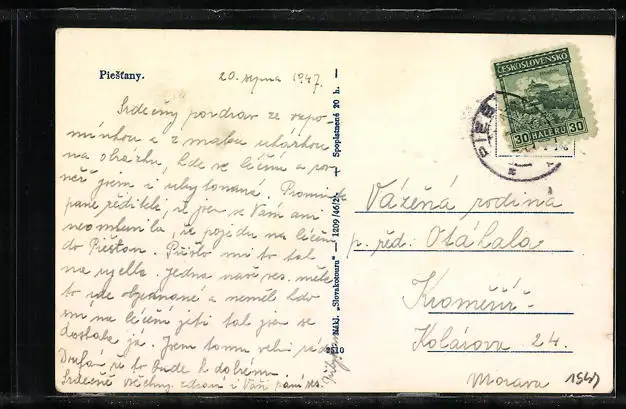 Piešťany.
20. srpna 1947.
Srdečný pozdrav ze vzpo-
mínkou a z malou ukázkou
na obrázku, kde se léčím a
jsem i ubytovaná. Promiňte
pane řediteli, že jsem se Vám ani
neomluvila, že pojedu na léčení
do Piešťan. Přišlo mi to tak
na rychlo. Jedna
to zde objednané a neměl kdo
na léčení jeti tak jsem se
dostala já. Jsem tomu velmi ráda
Doufám že to bude k dobrému.
Srdečně všechny zdraví i Vaší paní
Nákl. „Slovakotour" — 1209/46/2 — Spoplatnené 20 h. —
ČESKOSLOVENSKO
30 HALÉŘŮ 30
PIEŠ
Vážená rodina
p. řed. Otáhala
Kroměříž-
Kolárova 24.
Morava 1947